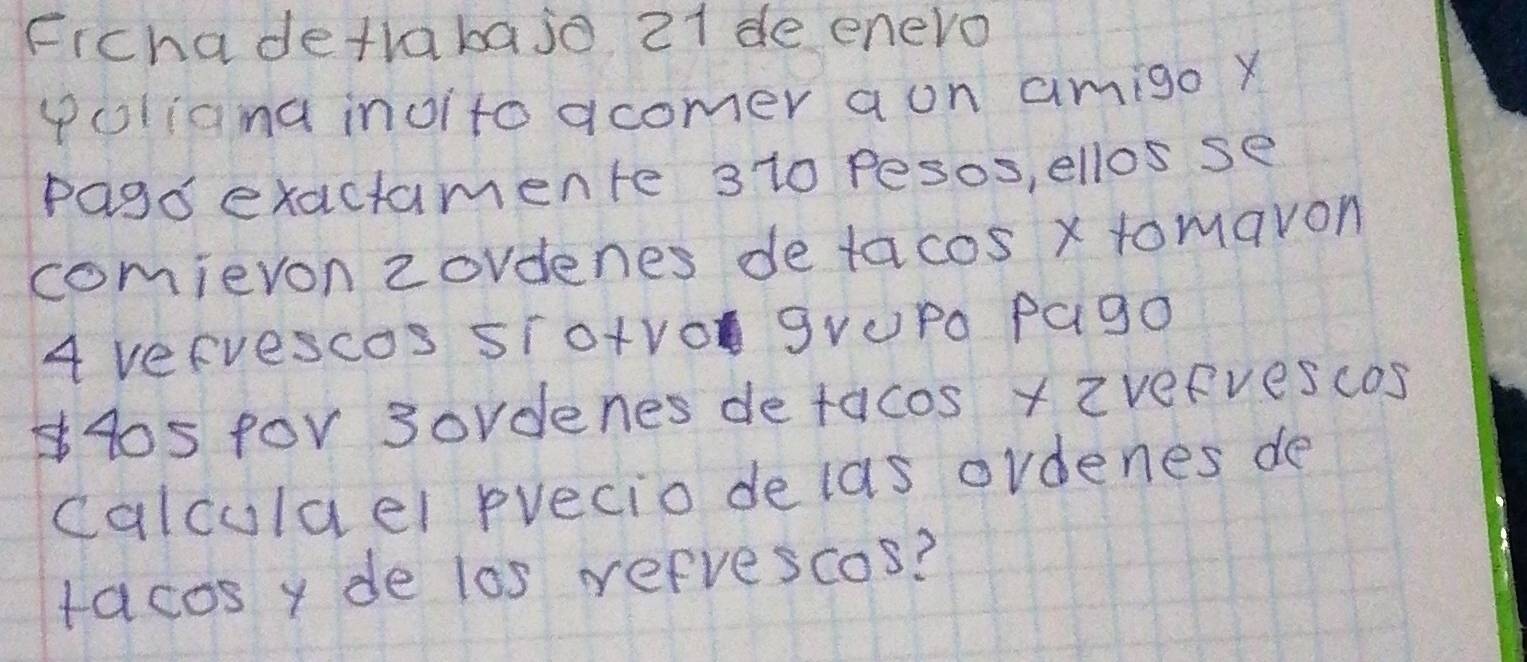 Ficha de trabajo 21 de enero
Yuliana invito a comer a un amigo y
pagó exactamente 370 Pesos, ellos se
comieron 2 ordenes de tacos y tomaron
4 refrescos si otro grupo pago
$405 por 3 ordenes de tacos y 2 refrescos
calcula el precio de las ordenes de
tacos y de los refrescos?